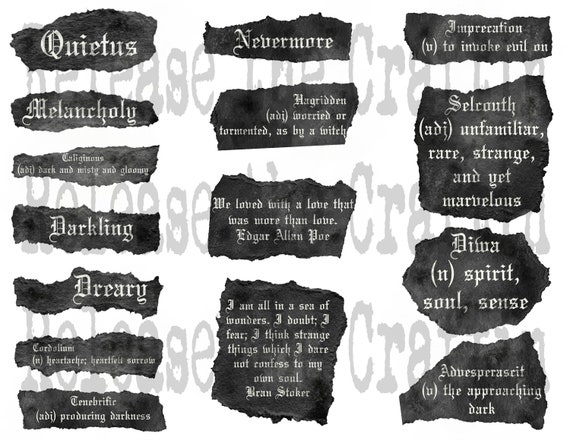 Quietus
Melancholy
Caliginous
(adj) dark and misty and gloomy
Darkling
Dreary
Cordolium
(n) heartache; heartfelt sorrow
Tenebrific
(adj) producing darkness
Nevermore
Hagridden
(adj) worried or
tormented, as by a witch
We loved with a love that
was more than love.
Edgar Allan Poe
I am all in a sea of
wonders. I doubt; I
fear; I think strange
things which I dare
not confess to my
own soul.
Bran Stoker
Imprecation
(v) to invoke evil on
Selcouth
(adj) unfamiliar,
rare, strange,
and yet
marvelous
Diwa
(n) spirit,
soul, sense
Advesperascit
(v) the approaching
dark
Release the Craftin
Release the Craftin
Release the Craftin
Release the Craftin